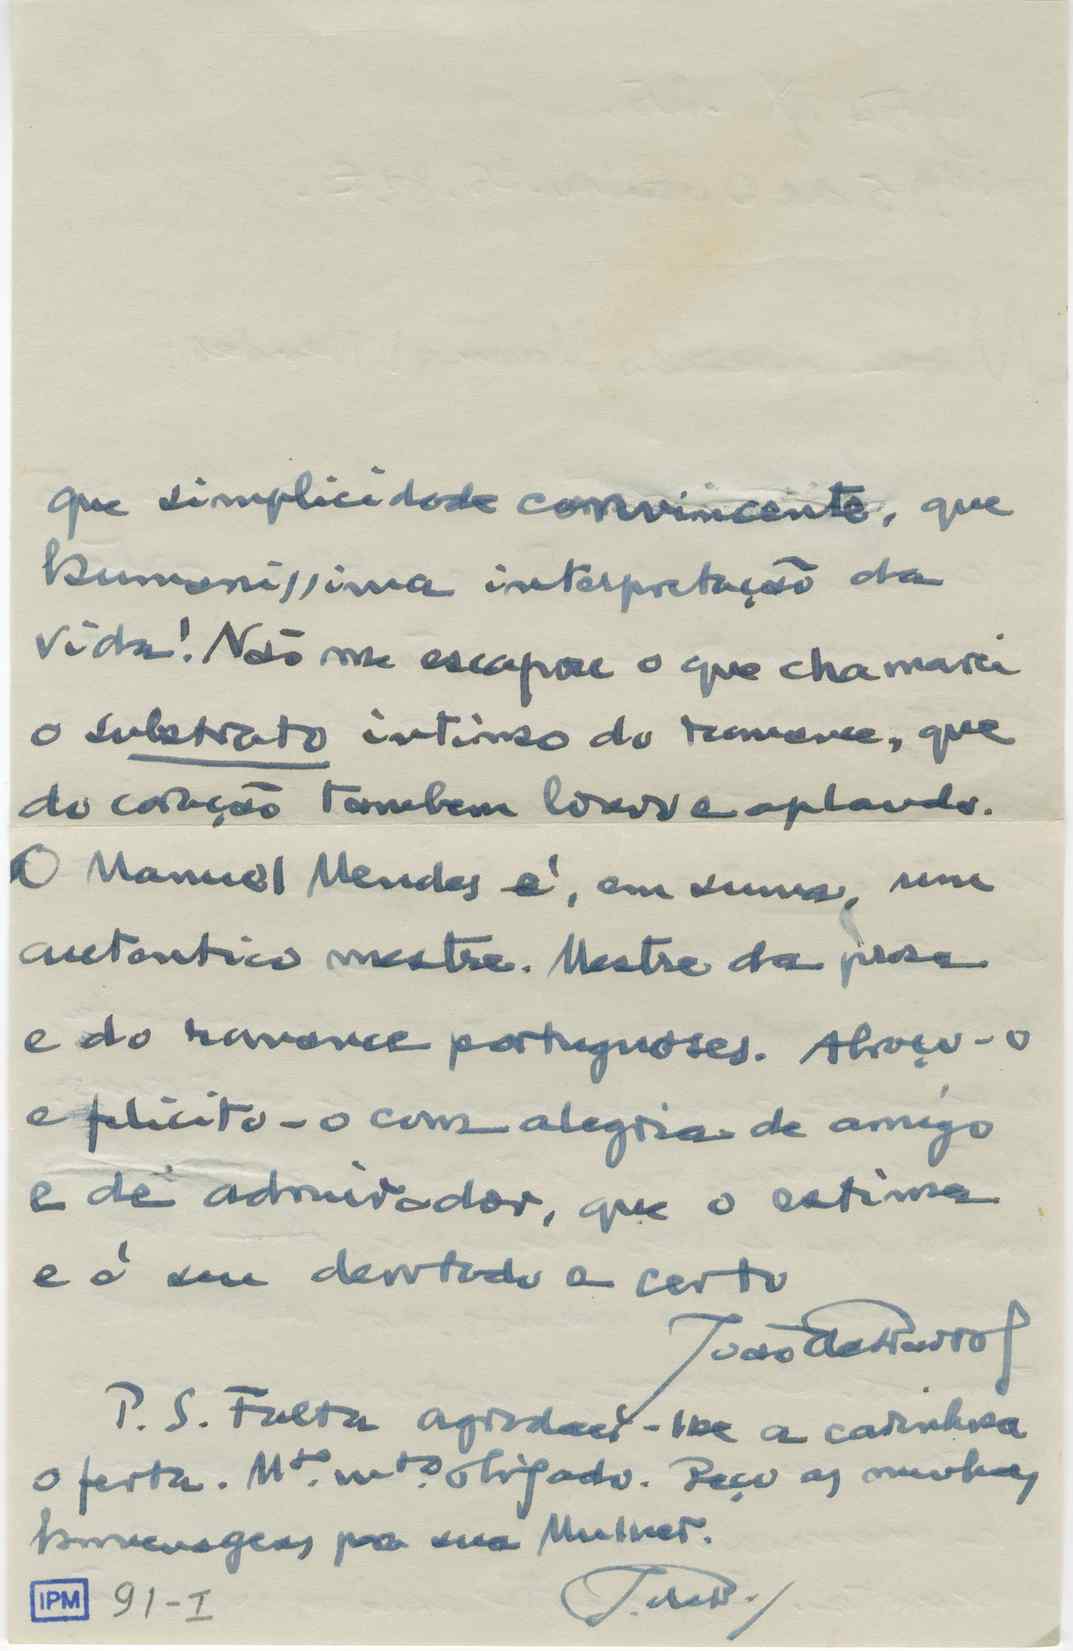 que simplicidade convincente, que
humaníssima interpretação da
vida! Não me escapou o que chamarei
o substrato intimo do romance, que
do coração tambem louvo e aplaudo.
O Manuel Mendes é, em suma, um
autentico mestre. Mestre da prosa
e do romance portugueses. Abraço-o
e felicito-o com alegria de amigo
e de admirador, que o estima
e é seu devotado e certo
João de Barros
P. S. Falta agradecer-lhe a carinhosa
oferta. Mto. mto. obrigado. Peço as minhas
homenagens pa sua Mulher.
J. de B.
IPM 91-I